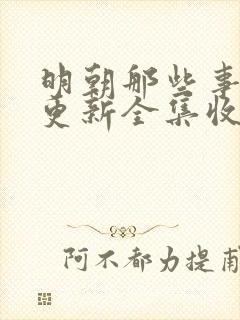 明朝那些事
更新全集收
阿不都力提甫